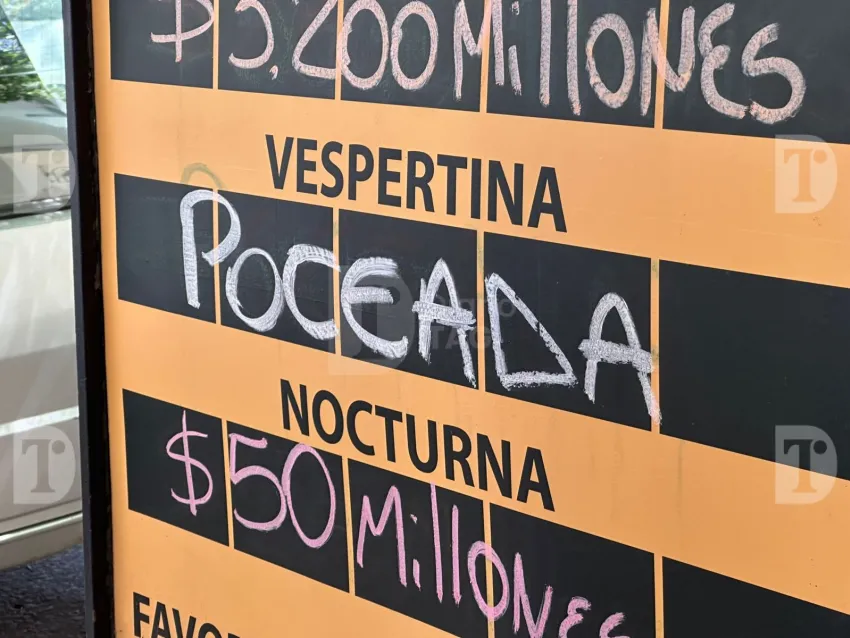 $5,200 Millones
VESPERTINA
POCEADA
NOCTURNA
$50 Millones